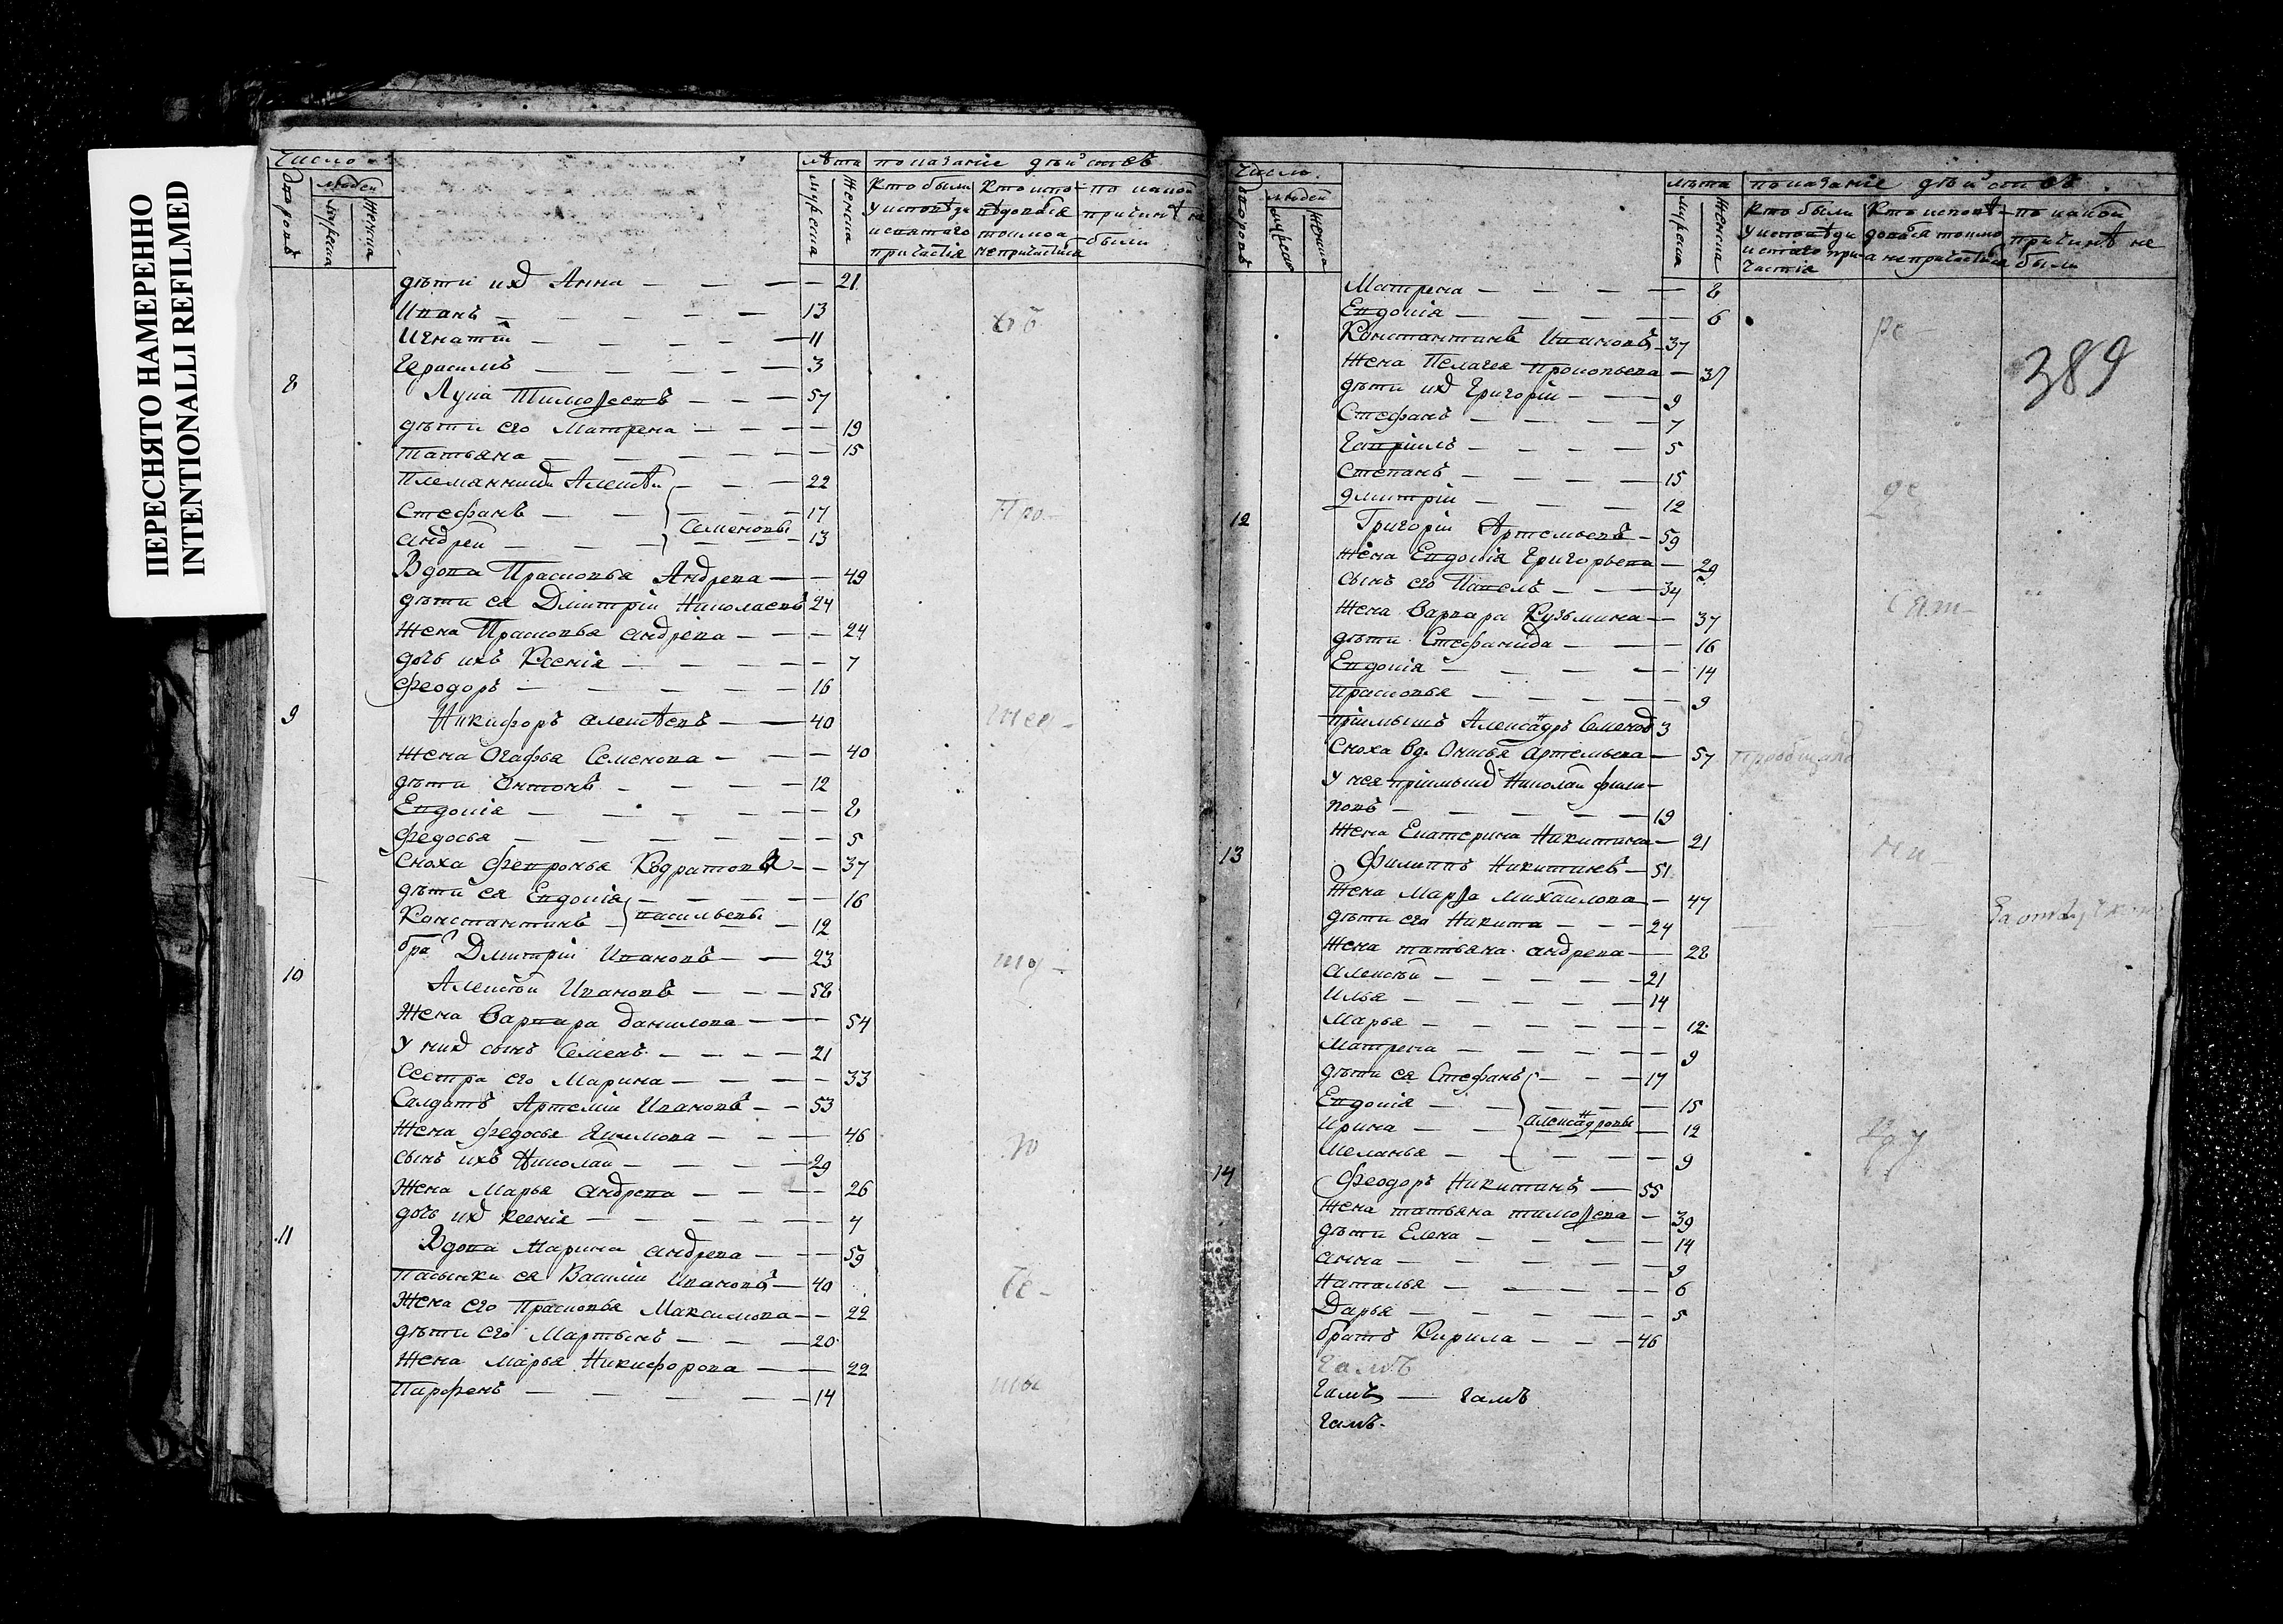 ПЕРЕСНЯТО НАМЕРЕННО
INTENTIONALLI REFILMED
Число
людей
дворовъ
мужеска
женска
лѣта
мужеска
женска
показаніе дѣйствъ
Кто были у исповѣди и святаго причастія
Кто исповѣдовался токмо а не причастился
по какой причинѣ не были
дѣти ихъ Анна — — — 21
Иванъ — — — 13
Игнатій — — — 11
Герасимъ — — — 3
8 Лука Тимоѳеевъ — — — 57
дѣти его Матрена — — — 19
Татьяна — — — 15
Племянники Алексѣй — — — 22
Стефанъ — — — 17
Андрей — — — Семеновы 13
Вдова Прасковья Андрева — — 49
дѣти ея Дмитрій Николаевъ 24
Жена Прасковья Андрѣва — — — 24
дочь ихъ Ксенія — — — 7
Феодоръ — — — 16
9 Никифоръ Алексѣевъ — — 40
Жена Огафья Семенова — — 40
дѣти Онтонъ — — — 12
Евдокія — — — 8
Федосья — — — 5
Сноха Февронья Кодратова — — 37
дѣти ея Евдокія — — — 16
Константинъ — васильевы 12
бра Дмитрій Ивановъ — — 23
10 Алексѣй Ивановъ — — — 58
Жена Варвара Данилова — — 54
У них сынъ Семенъ — — — 21
Сестра его Марина — — — 33
Салдатъ Артемій Ивановъ — — 53
Жена Федосья Якимова — — — 46
сынъ ихъ Николай — — — 29
Жена Марья Андрева — — — 26
дочь их Ксенія — — — 4
11 Вдова Марина Андрева — — 59
Пасынки ея Василій Ивановъ — 40
Жена его Прасковья Максимова — — 22
дѣти его Мартынъ — — — 20
Жена Марья Никифорова — — 22
Парфенъ — — — 14
Число
людей
дворовъ
мужеска
женска
лѣта
мужеска
женска
показаніе дѣйствъ
Кто были у исповѣди и стаго причастія
Кто исповѣдовался токмо а не причастился
по какой причинѣ не были
389
Матрена — — — 8
Евдокія — — — 6
Константинъ Ивановъ — 37
Жена Пелагея Прокопьева — 37
дѣти их Григорій — — 9
Стефанъ — — — 7
Гавріилъ — — — 5
Степанъ — — — 15
Дмитрій — — — 12
12 Григорій Артемьевъ — 59
Жена Евдокія Григорьева — 29
сынъ его Павелъ — — 34
Жена Варвара Кузьмина — 37
дѣти Стефанида — — 16
Евдокія — — — 14
Прасковья — — — 9
Пріимышъ Александръ Семенов 3
Сноха вд. Онисья Артемьева — 57
У нея пріимышъ Николай Фили-
повъ — — — 19
Жена Екатерина Никитина — 21
13 Филиппъ Никитинъ — 51
Жена Марѳа Михайлова — 47
дѣти его Никита — — — 24
Жена Татьяна Андрева — 28
Алексѣй — — — 21
Илья — — — 14
Марья — — — 12
Матрена — — — 9
дѣти ея Стефанъ — — — 17
Евдокія — — — 15
Ирина — — Александровы 12
Меланья — — — 9
14 Феодоръ Никитинъ — 55
Жена Татьяна Тимоѳева — 39
дѣти Елена — — — 14
Анна — — — 9
Наталья — — — 6
Дарья — — — 5
братъ Кирила — — — 46